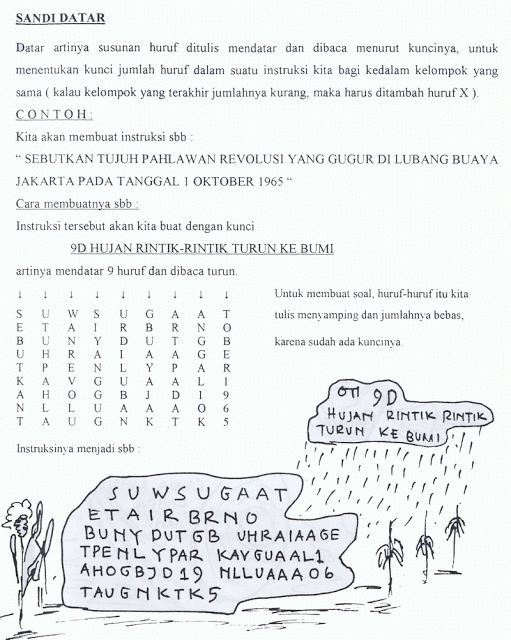 SANDI DATAR
Datar artinya susunan huruf ditulis mendatar dan dibaca menurut kuncinya, untuk
menentukan kunci jumlah huruf dalam suatu instruksi kita bagi kedalam kelompok yang
sama ( kalau kelompok yang terakhir jumlahnya kurang, maka harus ditambah huruf X ).
C O N T O H :
Kita akan membuat instruksi sbb :
“ SEBUTKAN TUJUH PAHLAWAN REVOLUSI YANG GUGUR DI LUBANG BUAYA
JAKARTA PADA TANGGAL 1 OKTOBER 1965 “
Cara membuatnya sbb :
Instruksi tersebut akan kita buat dengan kunci
9D HUJAN RINTIK-RINTIK TURUN KE BUMI
artinya mendatar 9 huruf dan dibaca turun.
↓ ↓ ↓ ↓ ↓ ↓ ↓ ↓ ↓
S U W S U G A A T
E T A I R B R N O
B U N Y D U T G B
U H R A I A A G E
T P E N L Y P A R
K A V G U A A L 1
A H O G B J D 1 9
N L L U A A A O 6
T A U G N K T K 5
Untuk membuat soal, huruf-huruf itu kita
tulis menyamping dan jumlahnya bebas,
karena sudah ada kuncinya.
Instruksinya menjadi sbb :
9D
HUJAN RINTIK RINTIK
TURUN KE BUMI
S U W S U G A A T
E T A I R B R N O
BUNY DUTGB UHRAIAAGE
TPENLYPAR KAVGUAAL1
AHOGBJD19 NLLUAAAO6
TAUGNKTK5